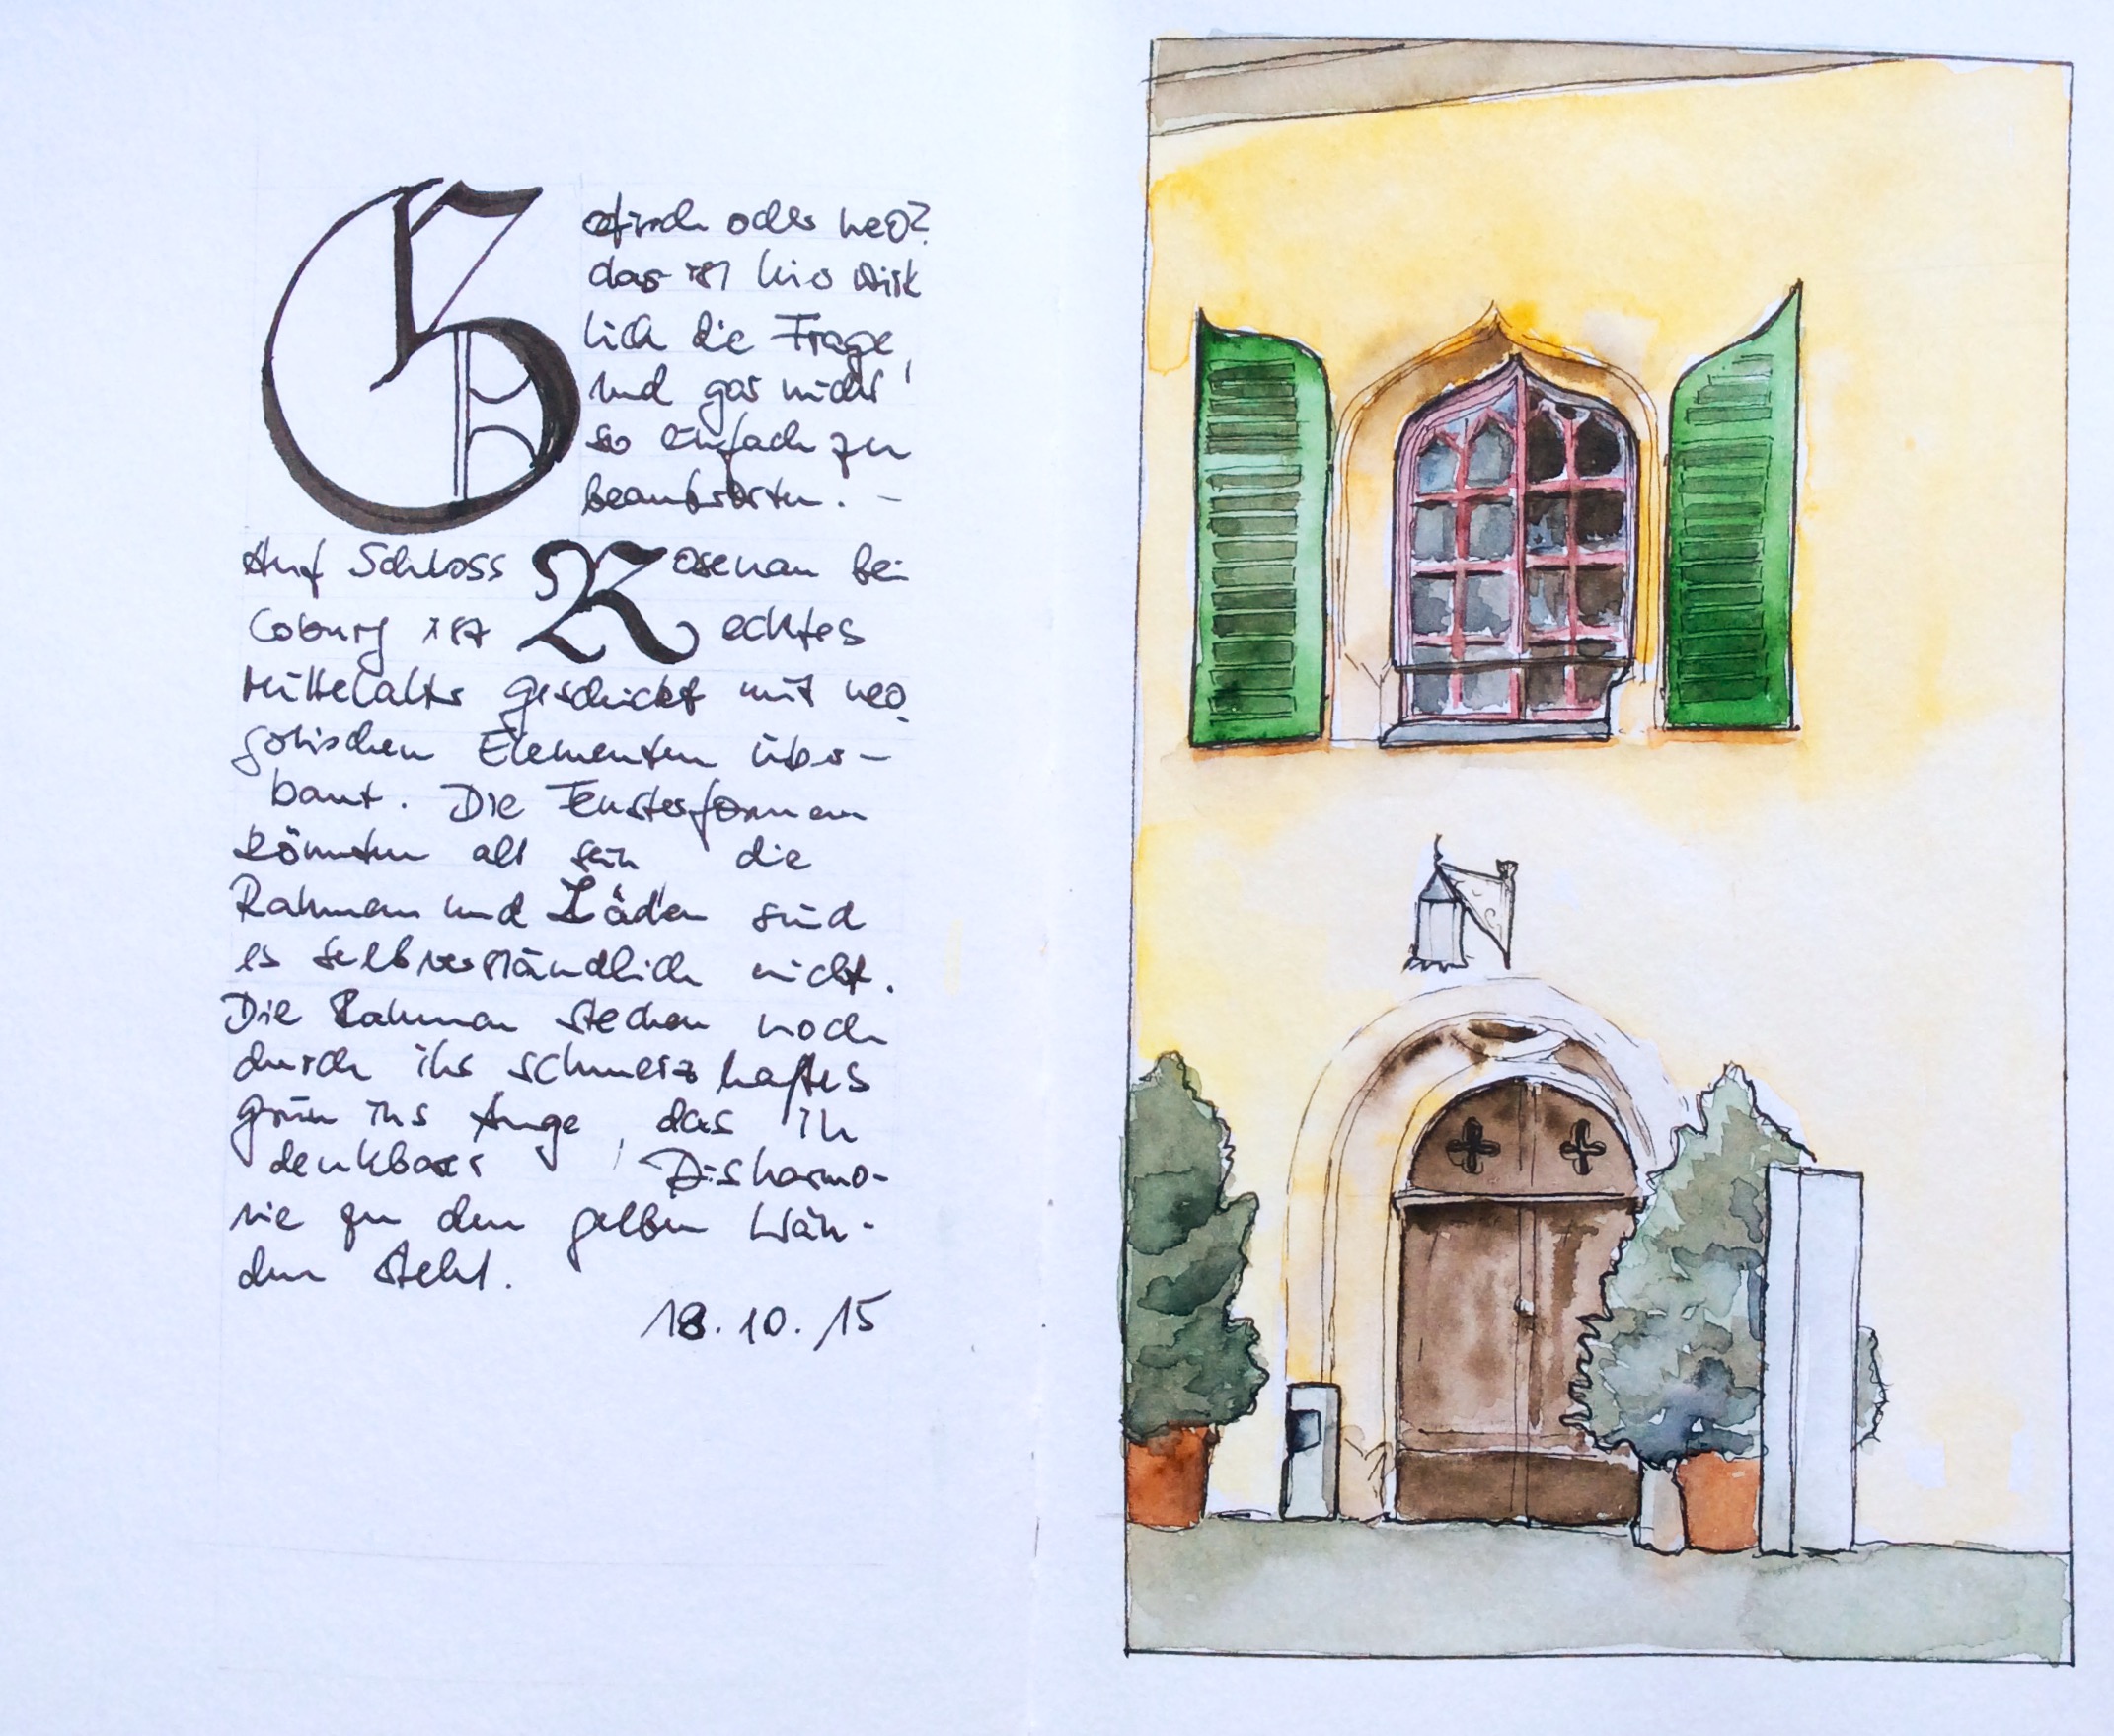 Gotisch oder neo?
das ist hier wirk
lich die Frage,
und gar nicht
so einfach zu
beantworten. –
Auf Schloss Rosenau bei
Coburg ist echtes
Mittelalter geschickt mit neo
gotischen Elementen über-
baut. Die Fensterformen
könnten alt sein die
Rahmen und Läden sind
es selbverständlich nicht.
Die Rahmen stechen noch
durch ihr schmerzhaftes
grün ins Auge, das in
denkbarer Disharmo-
nie zu den gelben Wän-
den steht.
18.10.15